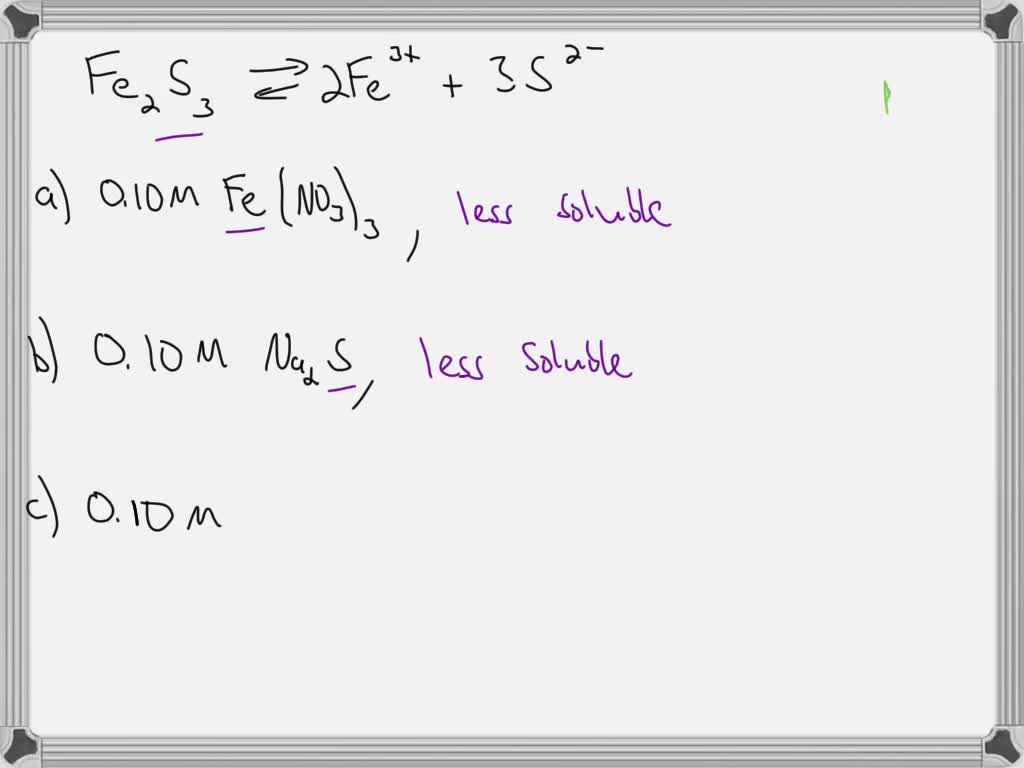 Fe₂S₃ ⇌ 2Fe³⁺ + 3S²⁻
a) 0.10M Fe(NO₃)₃, less soluble
b) 0.10M Na₂S, less soluble
c) 0.10M